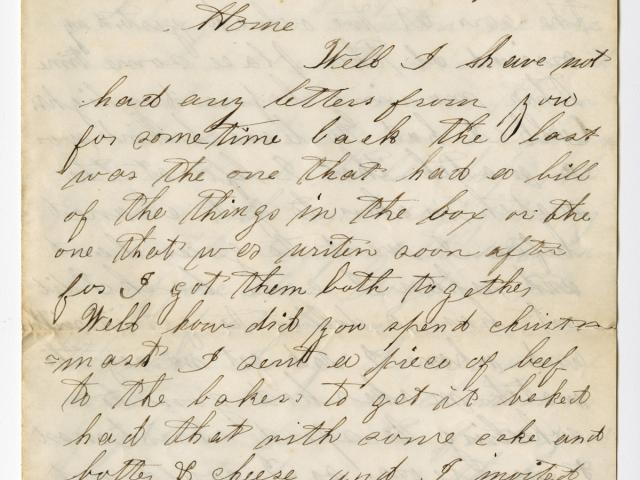 Home
Well I have not
had any letters from you
for sometime back the last
was the one that had a bill
of the things in the box or the
one that was writen soon after
for I got them both together
Well how did you spend christ=
=mast I sent a piece of beef
to the bakers to get it baked
had that with some cake and
butter & cheese and I invited